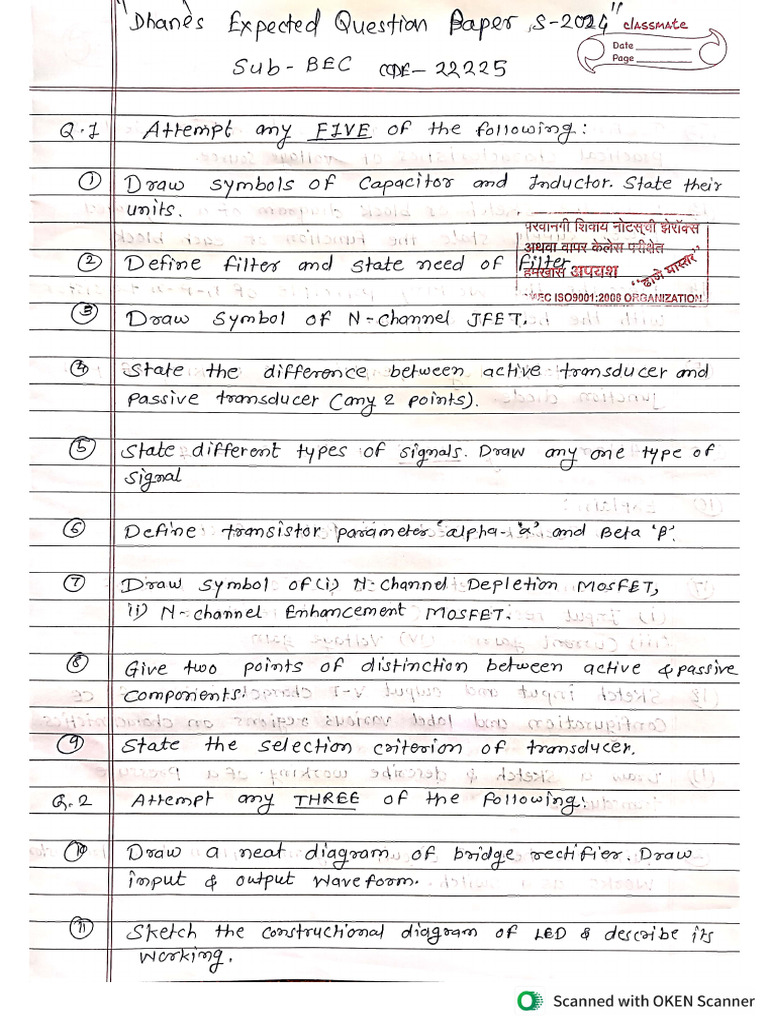 "Dhane's Expected Question Paper, S-2024"
classmate
Date
Page
Sub-BEC CODE-22225
Q.1 Attempt any FIVE of the following:
① Draw symbols of Capacitor and Inductor. State their
units.
परवानगी शिवाय नोटसची झेरॉक्स
अथवा वापर केलेस परीक्षेत
हमखास अपयश
WEC ISO9001:2008 ORGANIZATION
② Define filter and state need of filter
③ Draw Symbol of N-Channel JFET.
④ State the difference between active transducer and
Passive transducer (any 2 points).
⑤ State different types of signals. Draw any one type of
signal
⑥ Define transistor parameter 'alpha-'α' and Beta 'β'.
⑦ Draw Symbol of (i) N-Channel Depletion MOSFET,
ii) N-channel Enhancement MOSFET.
⑧ Give two points of distinction between active & passive
components.
⑨ State the selection criterion of transducer.
Q.2 Attempt any THREE of the following:
⑩ Draw a neat diagram of bridge rectifier. Draw
input & output waveform.
⑪ Sketch the constructional diagram of LED & describe its
working.
Scanned with OKEN Scanner